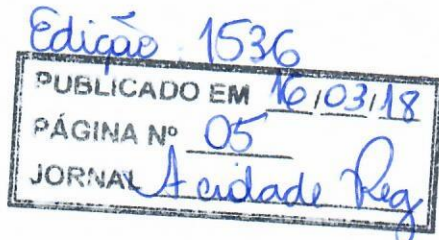 Edição 1536
PUBLICADO EM 16/03/18
PÁGINA Nº 05
JORNAL A cidade Reg